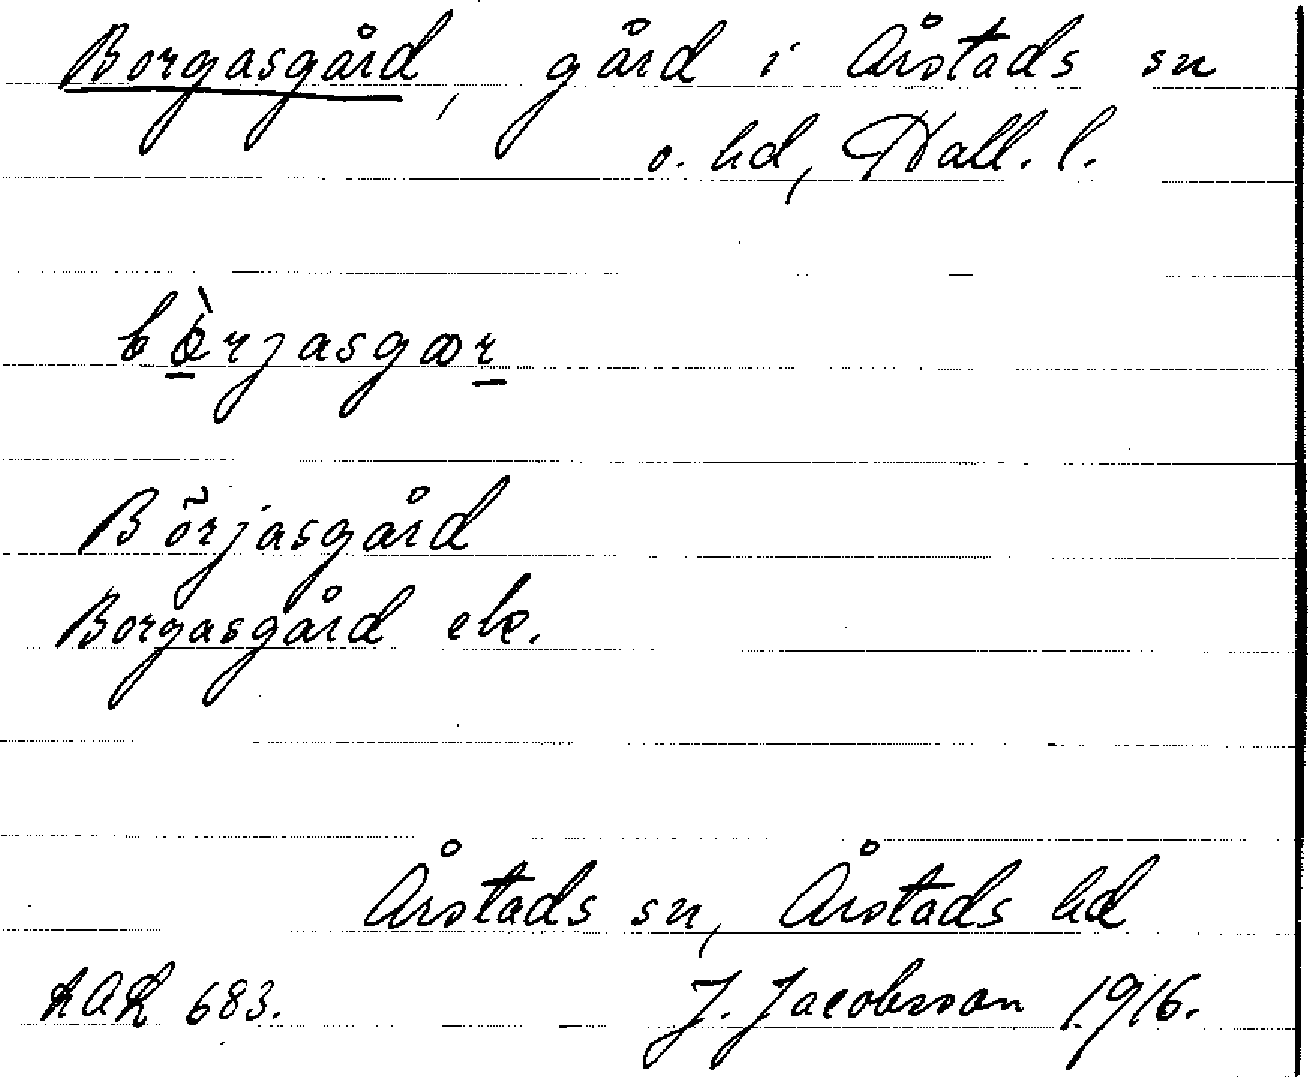 Borgasgård, gård i Årstads sn
o. hd, Hall. l.
bö̀rjasgær
Börjasgård
Borgasgård etc.
Årstads sn, Årstads hd
RAÄ 683. J. Jacobsson 1916.